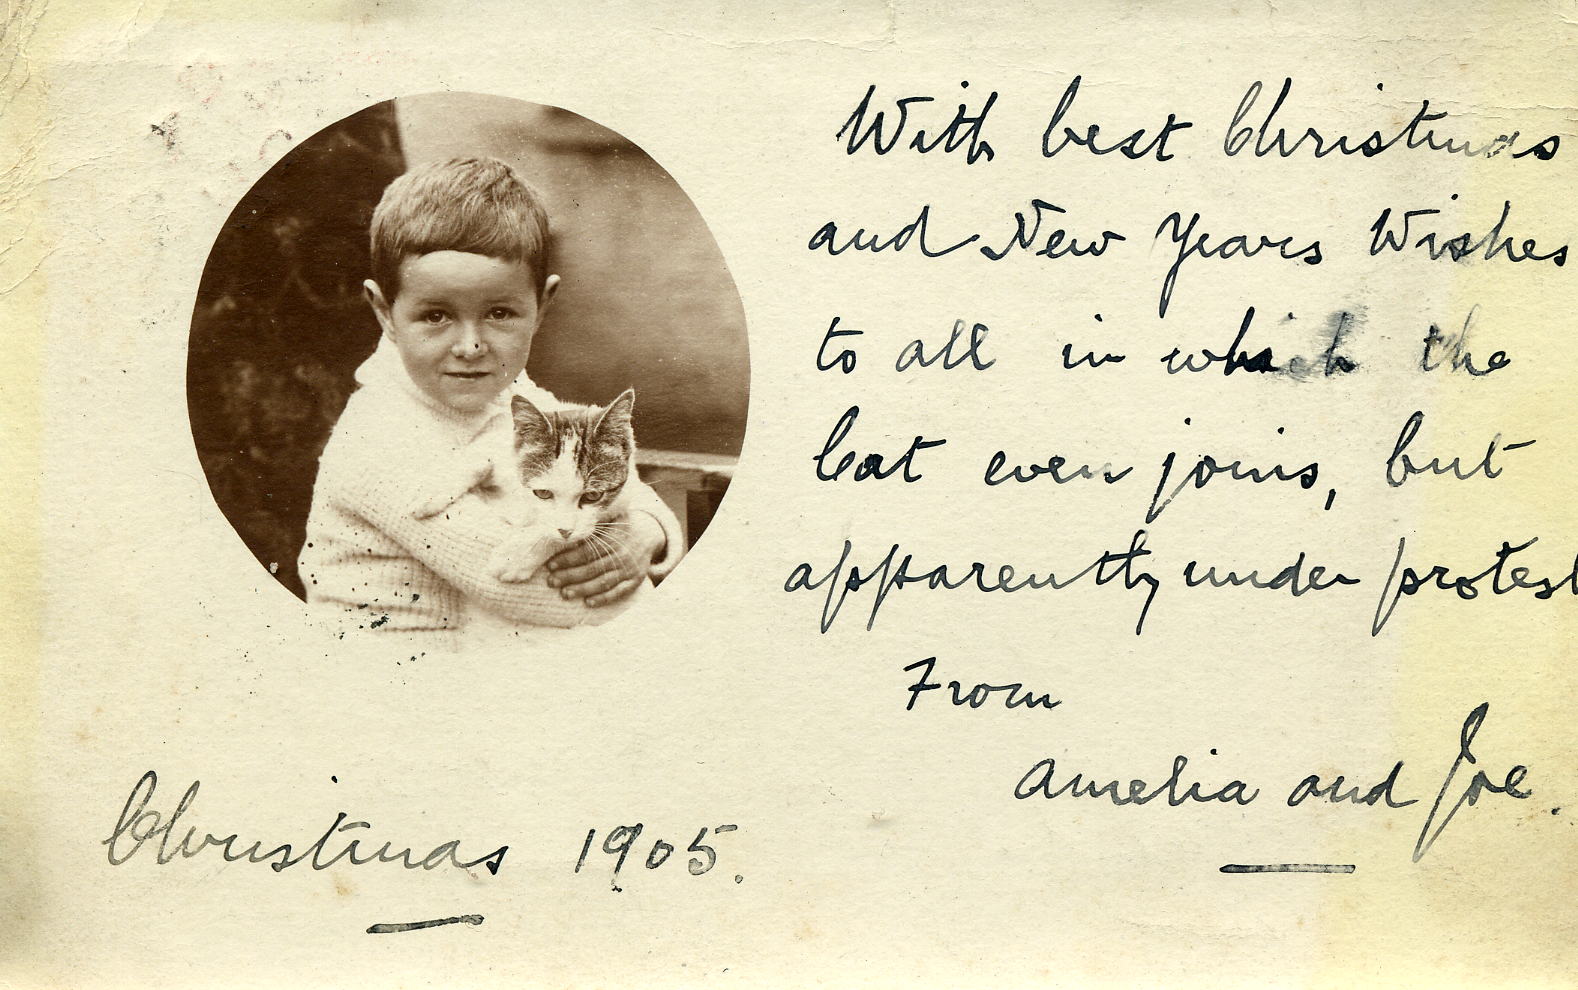 With best Christmas
and New Years Wishes
to all in which the
Cat even joins, but
apparently under protest
From
Amelia and Joe.
Christmas 1905.